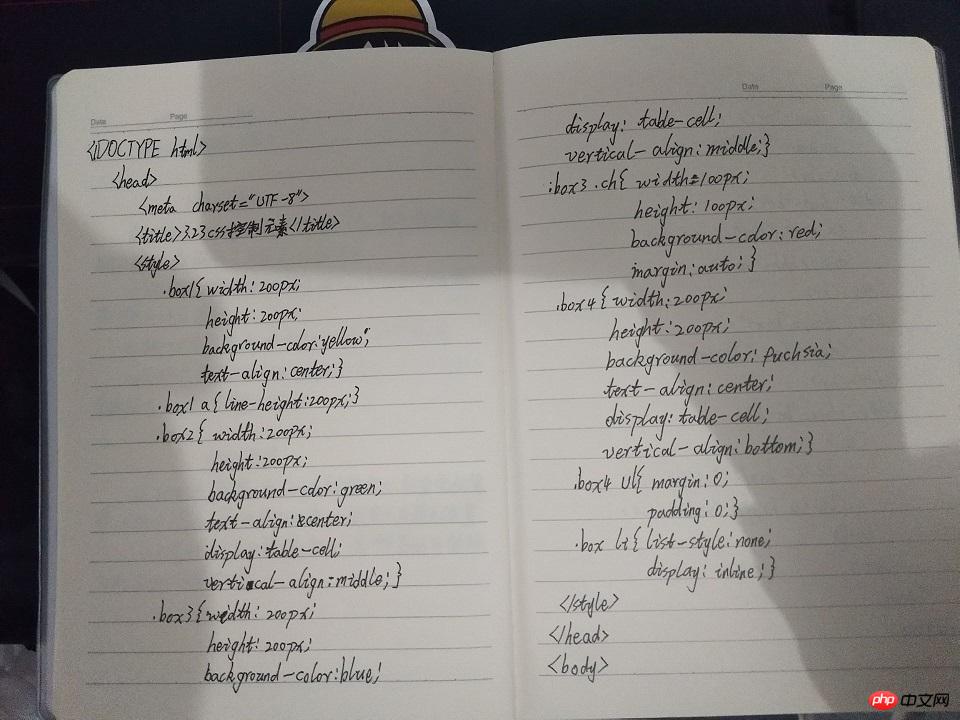 Date Page
<!DOCTYPE html>
<head>
<meta charset="UTF-8">
<title>3.23css控制元素</title>
<style>
.box1{ width: 200px;
height: 200px;
background-color:yellow;
text-align: center;}
.box1 a{ line-height:200px;}
.box2{ width: 200px;
height: 200px;
background-color: green;
text-align: center;
display: table-cell;
vertical-align: middle; }
.box3{ width: 200px;
height: 200px;
background-color: blue;
Date Page
display: table-cell;
vertical-align: middle;}
.box3 .ch{ width=100px;
height: 100px;
background-color: red;
margin: auto; }
.box4 { width: 200px;
height: 200px;
background-color: fuchsia;
text-align: center;
display: table-cell;
vertical-align: bottom; }
.box4 ul{ margin: 0;
padding: 0; }
.box li{ list-style: none;
display: inline; }
</style>
</head>
<body>
php 中文网